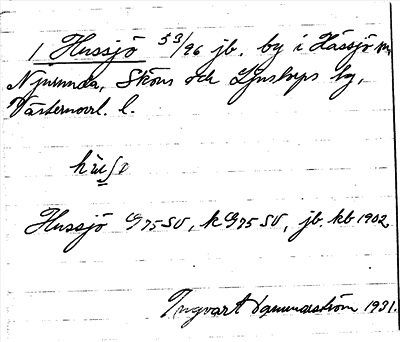 1 Hussjö 53/96 jb. by i Hässjö sn,
Njurunda, Sköns och Ljustorps tg,
Västernorrl. l.
Hussjö G75SV, k G75 SV, jb. kb 1902.
Ingvart Samuelström 1931.